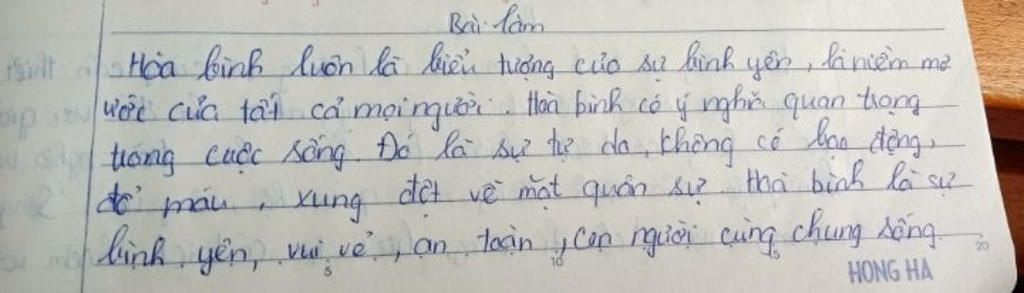 Bài làm
Hòa bình luôn là biểu tượng của sự bình yên, là niềm mơ
ước của tất cả mọi người. Hoà bình có ý nghĩa quan trọng
trong cuộc sống. Đó là sự tự do, không có bạo động,
đổ máu, xung đột về mặt quân sự. Hoà bình là sự
bình yên, vui vẻ, an toàn, con người cùng chung sống.
5 10 15 20
HONG HA